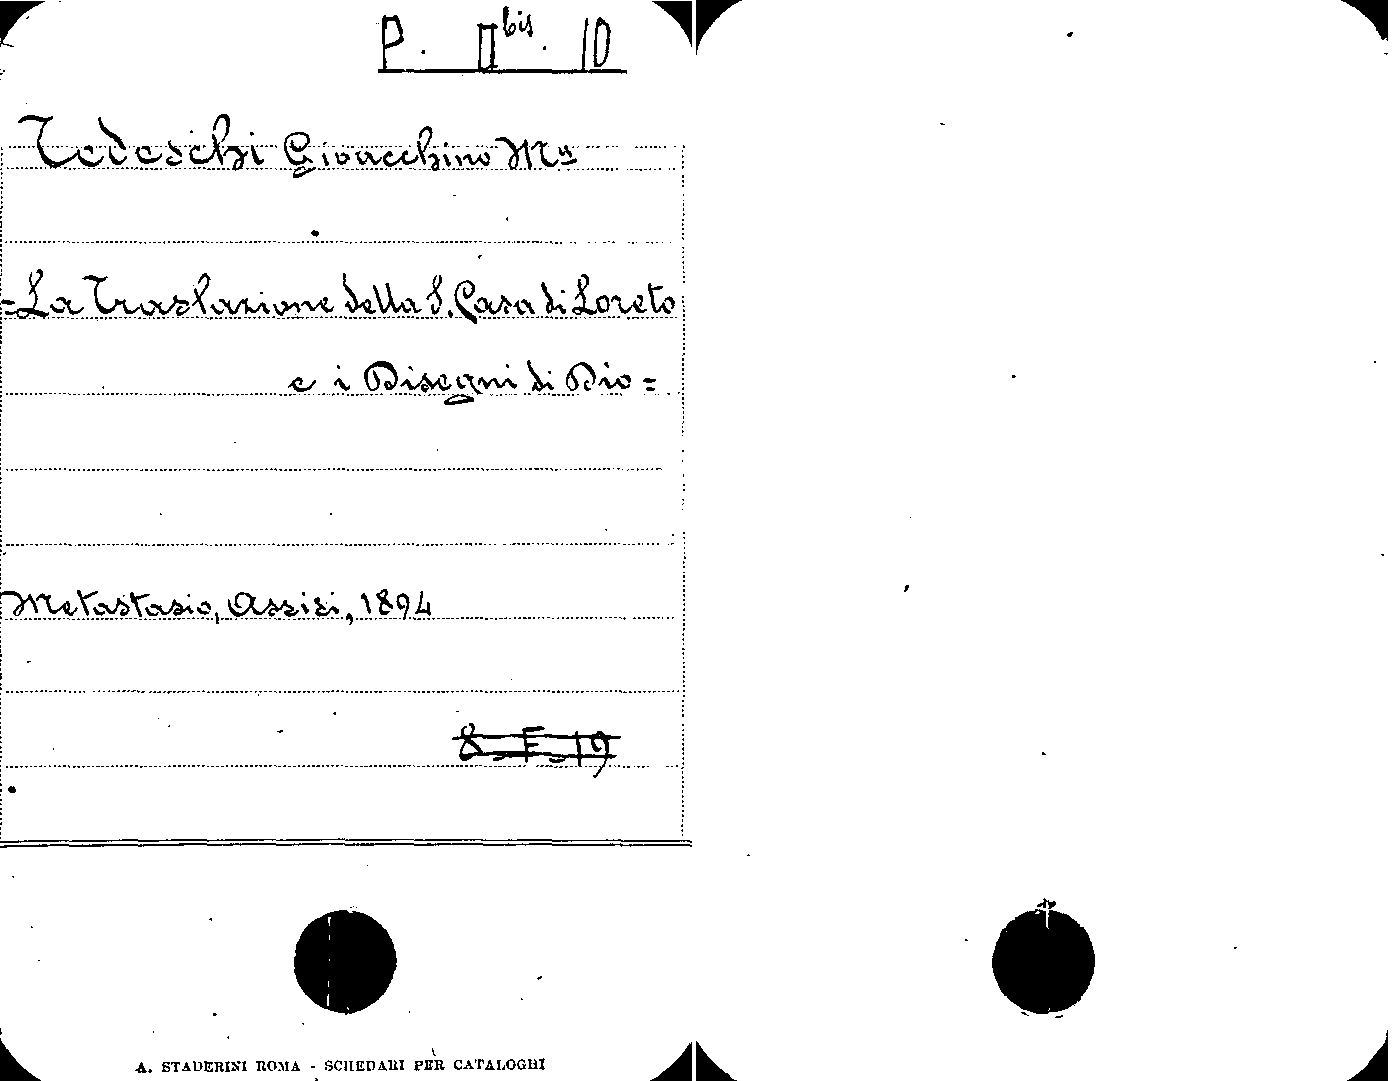 P. II bis. 10
Tedeschi Gioacchino Mª
=La Traslazione della S. Casa di Loreto
e i Disegni di Dio=
Metastasio, Assisi, 1894
8_F_19
A. STADERINI ROMA - SCHEDARI PER CATALOGHI